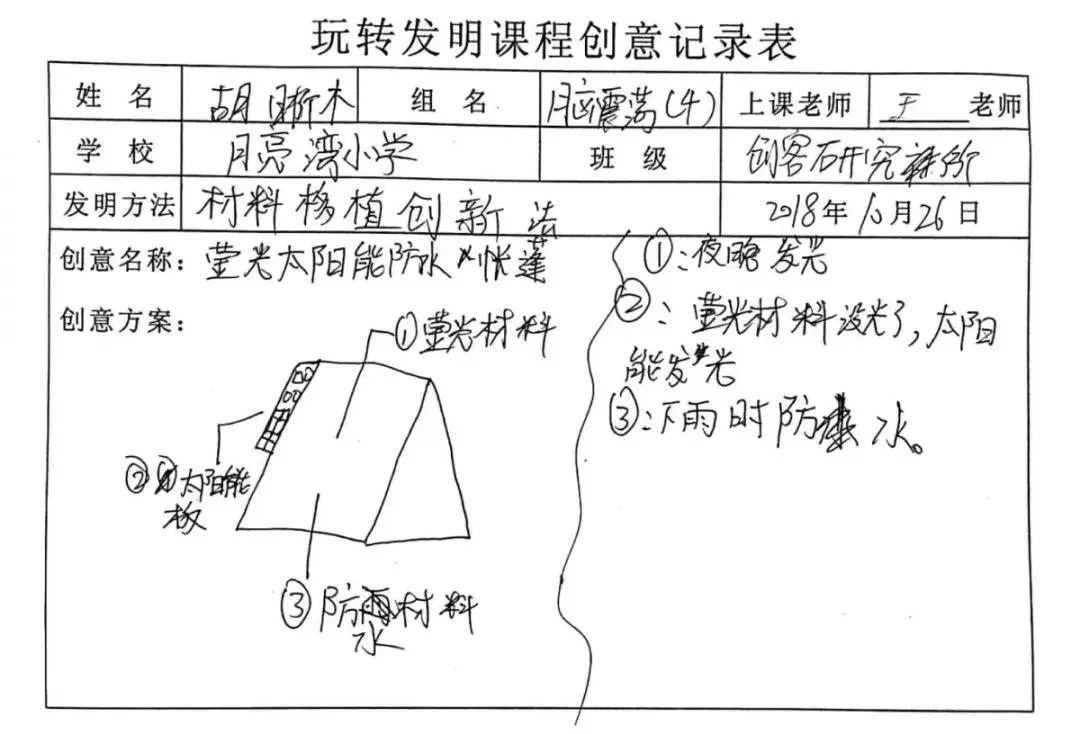 玩转发明课程创意记录表
姓 名 胡晰木 组 名 脑震荡(4) 上课老师 王 老师
学 校 月亮湾小学 班 级 创客研究
发明方法 材料移植创新法 2018年10月26日
创意名称：萤光太阳能防水帐蓬
创意方案：
①萤光材料
②太阳能
板
③防雨材料
水
①：夜晚发光
②：萤光材料没光了，太阳
能发光
③：下雨时防水。